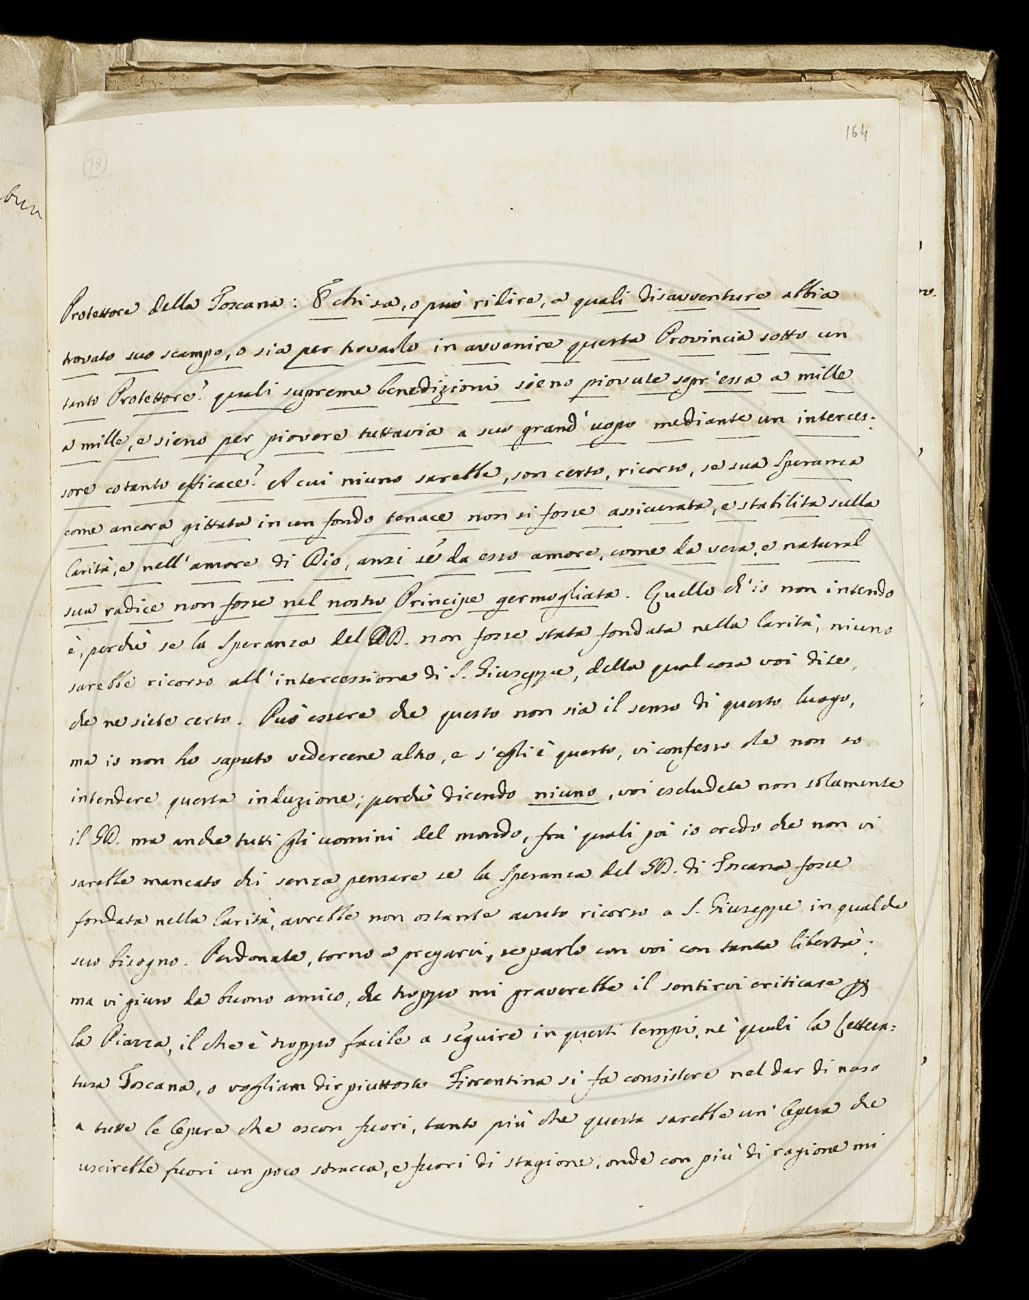 164
(78)
Protettore della Toscana: E chi sa, o può ridire, a quali disavventure abbia
trovato suo scampo, o sia per trovarlo in avvenire questa Provincia sotto un
tanto Protettore? quali supreme benedizioni sieno piovute sopr'essa a mille
a mille, e sieno per piovere tuttavia a suo grand'uopo mediante un interces:
sore cotanto efficace? A cui niuno sarebbe, son certo, ricorso, se sua Speranza
come ancora gittata in un fondo tenace non si fosse assicurata, e stabilita sulla
Carità, e nell'amore di Dio, anzi se da esso amore, come da vera, e natural
sua radice non fosse nel nostro Principe germogliata. Quello ch'io non intendo
è, perchè se la Speranza del GD. non fosse stata fondata nella Carità, niuno
sarebbe ricorso all'intercessione di S. Giuseppe, della qual cosa voi dite,
che ne siete certo. Può essere che questo non sia il senso di questo luogo,
ma io non ho saputo vedercene altro, e s'egli è questo, vi confesso che non so
intendere questa induzione; perchè dicendo niuno, voi escludete non solamente
il GD. ma anche tutti gli uomini del mondo, fra' quali poi io credo che non vi
sarebbe mancato chi senza pensare se la Speranza del GD. di Toscana fosse
fondata nella Carità, avrebbe non ostante avuto ricorso a S. Giuseppe in qualche
suo bisogno. Perdonate, torno a pregarvi, se parlo con voi con tanta libertà:
ma vi giuro da buono amico, che troppo mi graverebbe il sentirvi criticare p
la Piazza, il che è troppo facile a seguire in questi tempi, ne' quali la Lettera:
tura Toscana, o vogliam dir piuttosto Fiorentina si fa consistere nel dar di naso
a tutte le Opere che escon fuori, tanto più che questa sarebbe un'Opera che
uscirebbe fuori un poco stracca, e fuori di stagione, onde con più di ragione mi